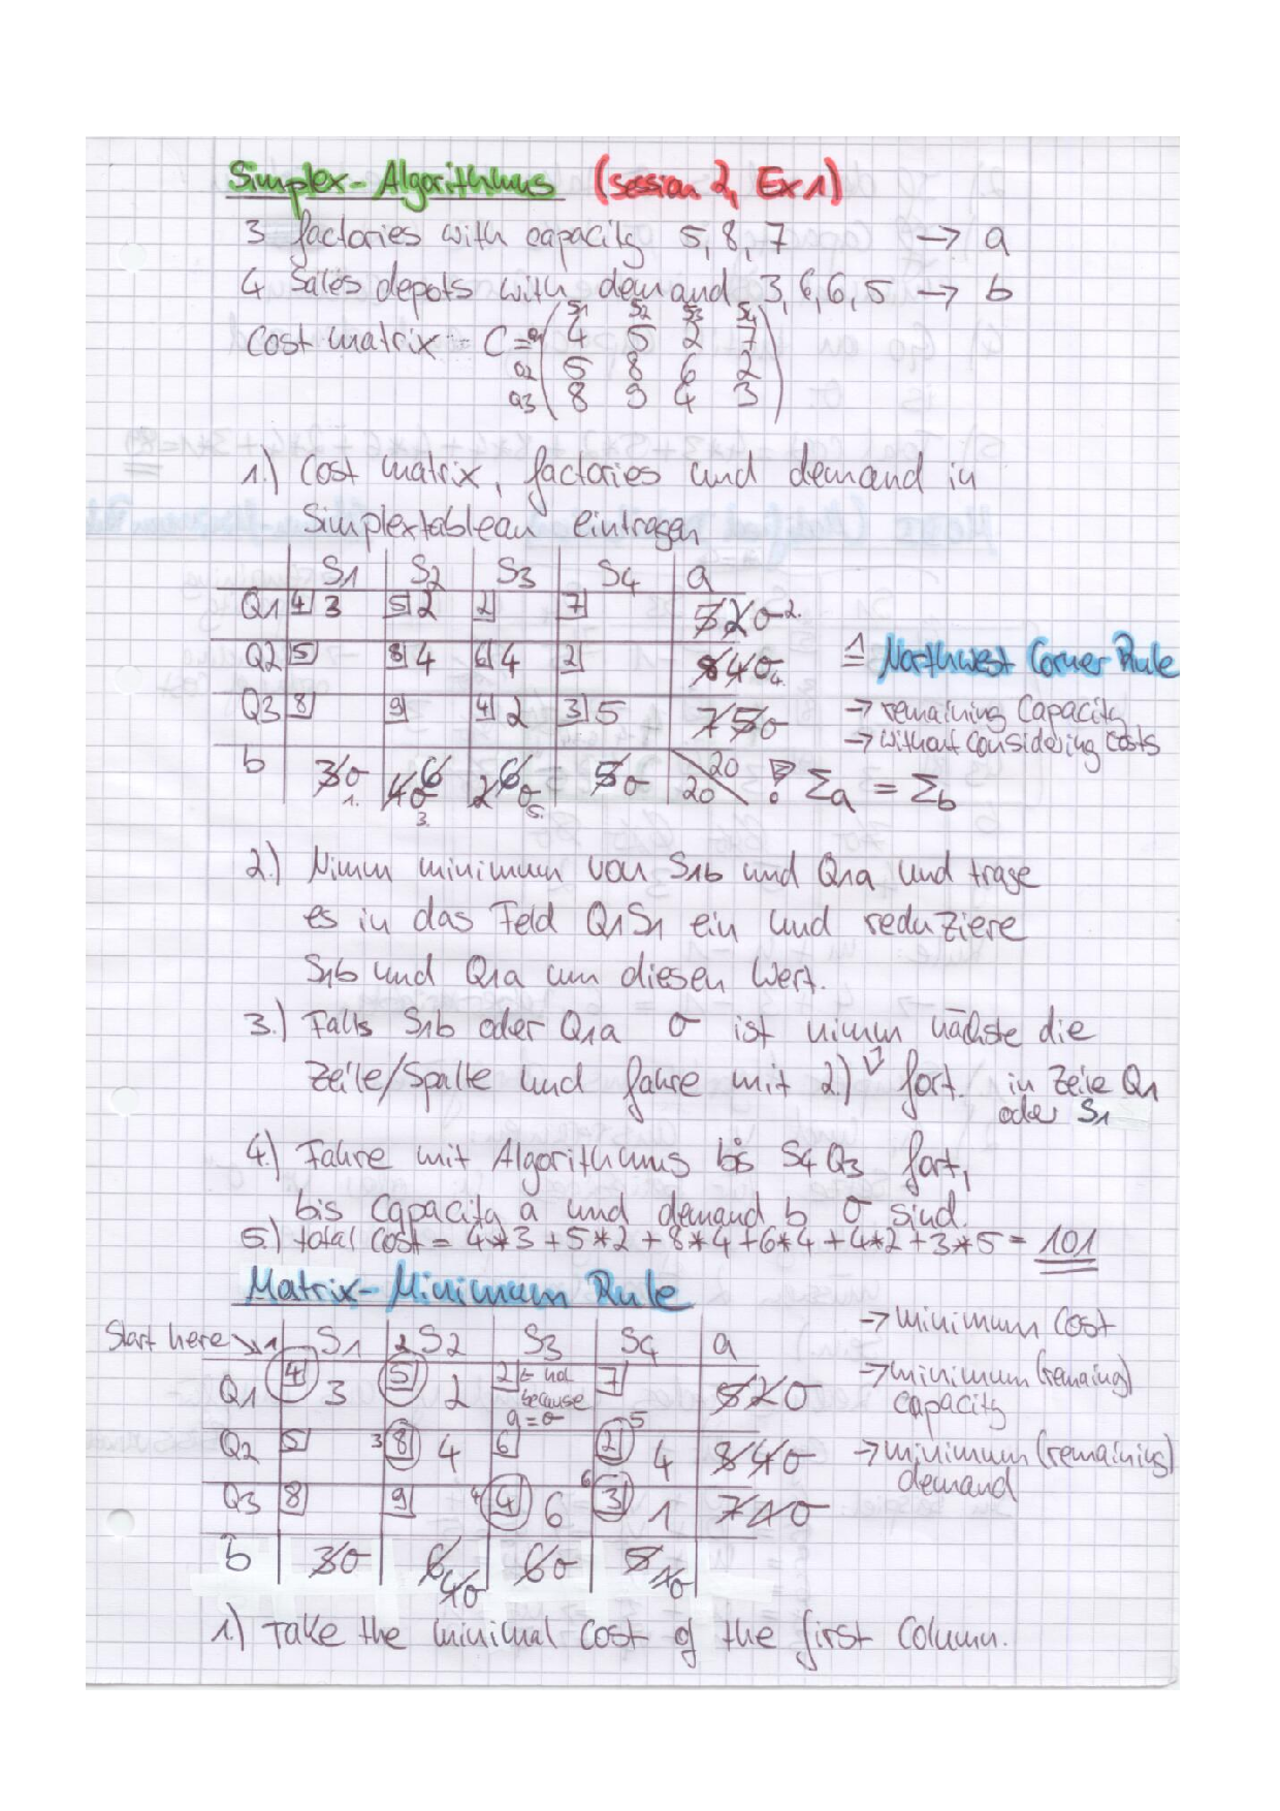 Simplex-Algorithmus (Session 2, Ex 1)
3 factories with capacity 5, 8, 7 → a
4 Sales depots with demand 3, 6, 6, 5 → b
S1 S2 S3 S4
Cost matrix = C = a1 4 5 2 7
a2 5 8 6 2
a3 8 9 4 3
1.) Cost matrix, factories und demand in
Simplextableau eintragen
S1 S2 S3 S4 a
Q1 4 3 5 2 2 7 5 2 0 2.
Q2 5 8 4 6 4 2 8 4 0 4.
≙ Northwest Corner Rule
Q3 8 9 4 2 3 5 7 5 0
→ remaining Capacity
→ without considering costs
b 3 0 1. 6 4 0 3. 6 2 0 5. 5 0 20 20 ! Σa = Σb
2.) Nimm minimum von S1b und Q1a und trage
es in das Feld Q1S1 ein und reduziere
S1b und Q1a um diesen Wert.
3.) Falls S1b oder Q1a 0 ist nimm nächste die
Zeile/Spalte und fahre mit 2.) fort. in Zeile Q1
oder S1
4.) Fahre mit Algorithmus bis S4 Q3 fort,
bis capacity a und demand b 0 sind.
5.) total cost = 4*3 + 5*2 + 8*4 + 6*4 + 4*2 + 3*5 = 101
Matrix-Minimum Rule
Start here 1 S1 2 S2 S3 S4 a
→ minimum cost
Q1 4 3 5 2 2 ← not because a=0 7 5 2 0
→ minimum (remaing)
capacity
Q2 5 3 8 4 6 5 2 4 8 4 0
→ minimum (remaining)
demand
Q3 8 9 4 4 6 6 3 1 7 1 0
b 3 0 6 4 0 6 0 5 1 0
1.) Take the minimal cost of the first column.